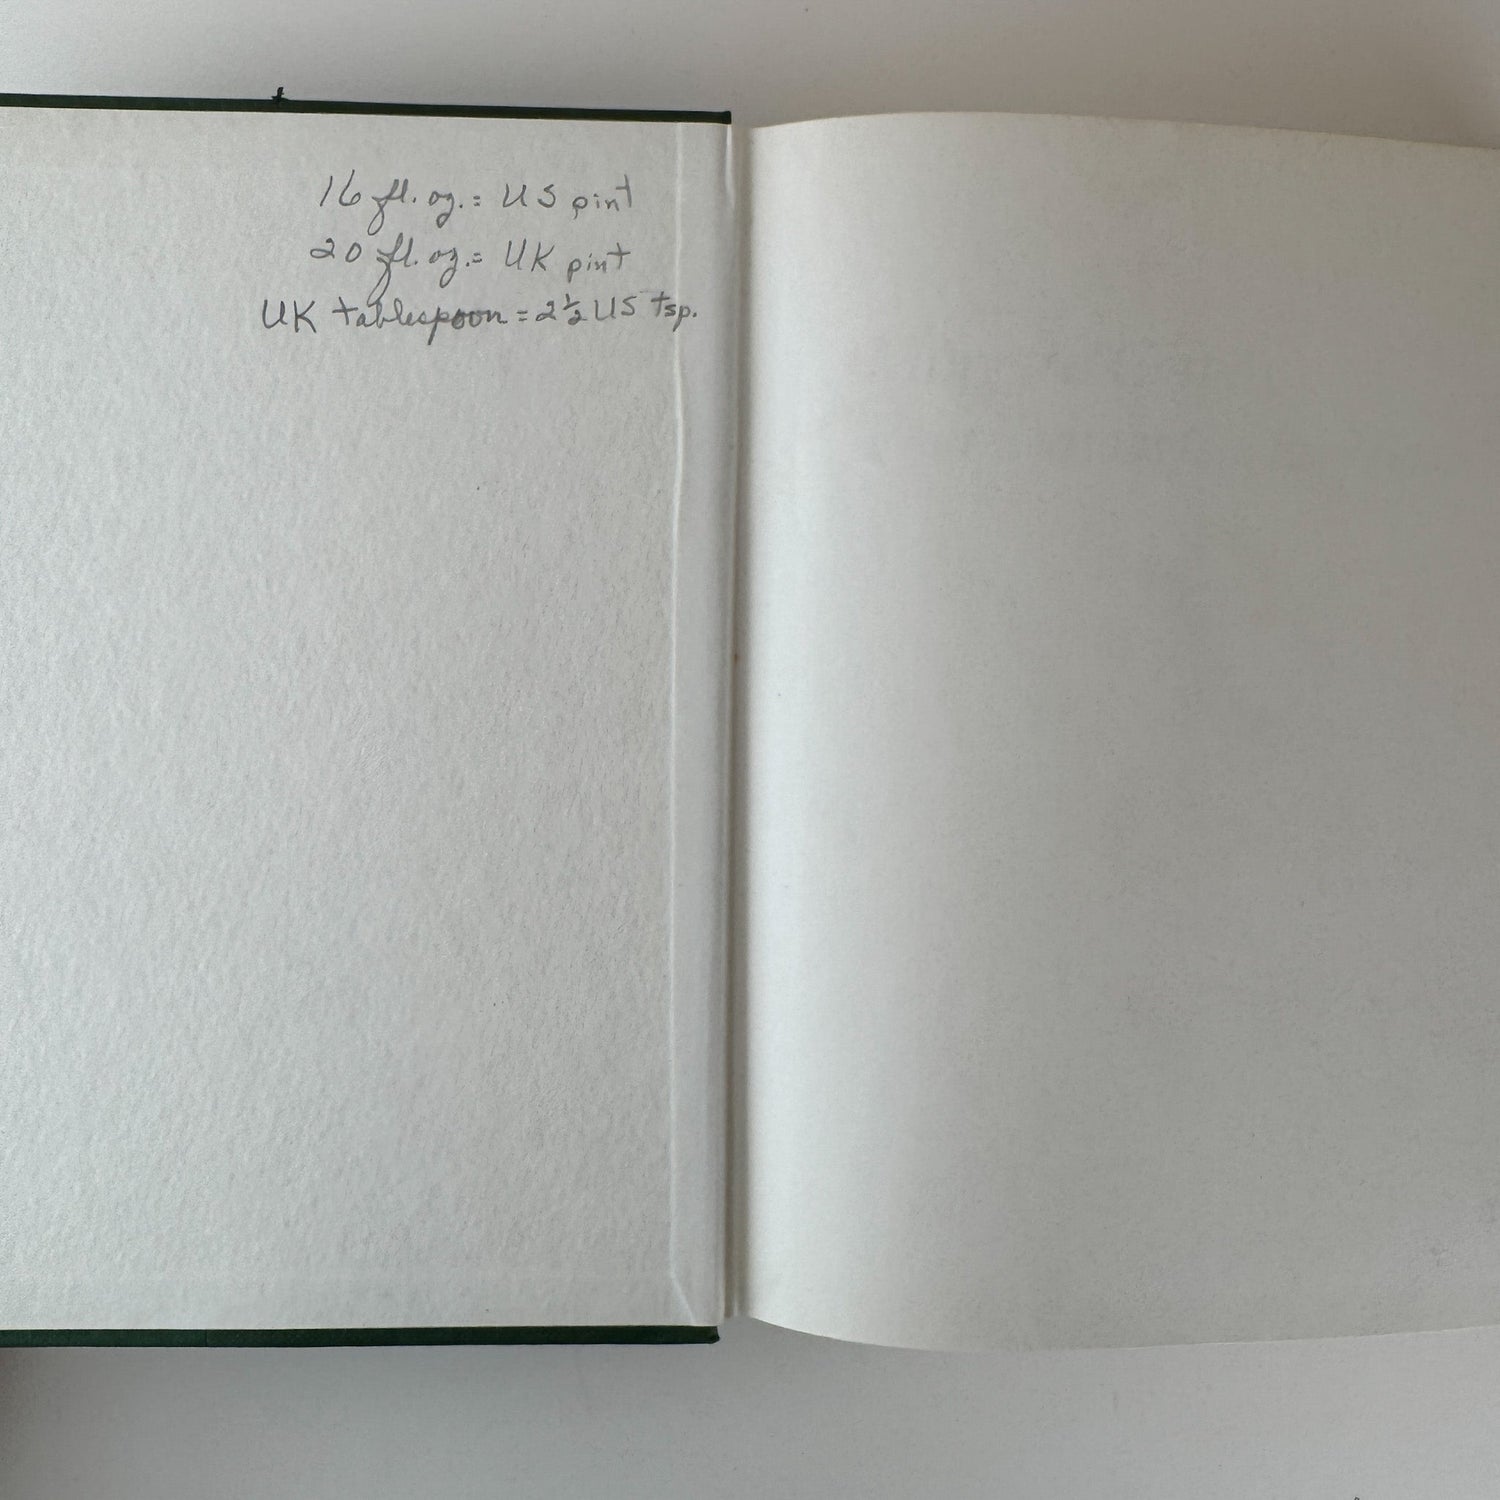 16 fl. oz. = US pint
20 fl. oz. = UK pint
UK tablespoon = 2 ½ US tsp.